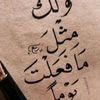 ولك
مثل
ما فعلت
يوماً